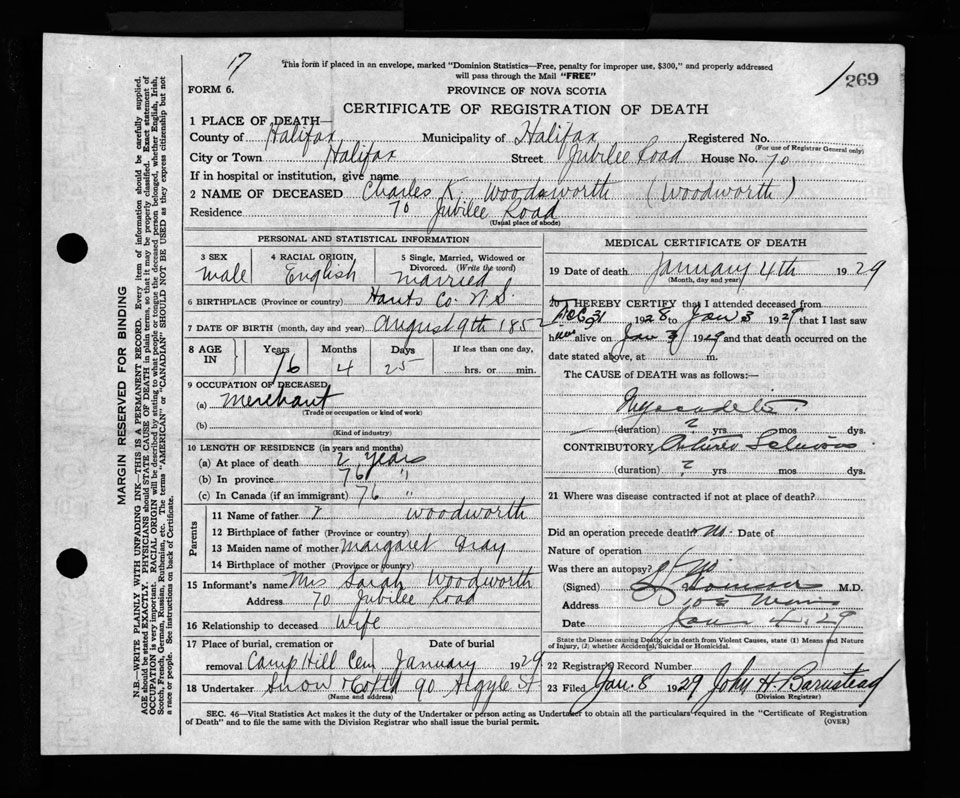 17
This form if placed in an envelope, marked "Dominion Statistics—Free, penalty for improper use, $300," and properly addressed
will pass through the Mail "FREE"
269
FORM 6.
PROVINCE OF NOVA SCOTIA
CERTIFICATE OF REGISTRATION OF DEATH
1 PLACE OF DEATH—
County of Halifax Municipality of Halifax Registered No.
(For use of Registrar General only)
City or Town Halifax Street Jubilee Road House No. 70
If in hospital or institution, give name
2 NAME OF DECEASED Charles K. Woodsworth (Woodworth)
Residence 70 Jubilee Road
(Usual place of abode)
PERSONAL AND STATISTICAL INFORMATION
3 SEX Male
4 RACIAL ORIGIN English
5 Single, Married, Widowed or Divorced. (Write the word) Married
6 BIRTHPLACE (Province or country) Hants Co. N.S.
7 DATE OF BIRTH (month, day and year) August 9th 1852
8 AGE IN Years 76 Months 4 Days 25 If less than one day, hrs. or min.
9 OCCUPATION OF DECEASED
(a) Merchant
(Trade or occupation or kind of work)
(b)
(Kind of industry)
10 LENGTH OF RESIDENCE (in years and months)
(a) At place of death 2 years
(b) In province 76 "
(c) In Canada (if an immigrant) 76 "
Parents
11 Name of father ? Woodworth
12 Birthplace of father (Province or country)
13 Maiden name of mother Margaret Gray
14 Birthplace of mother (Province or country)
15 Informant's name Mrs Sarah Woodworth
Address 70 Jubilee Road
16 Relationship to deceased Wife
17 Place of burial, cremation or removal Camp Hill Cem Date of burial January 1929
18 Undertaker Snow & Co Ltd 90 Argyle St
(Name and address)
MEDICAL CERTIFICATE OF DEATH
19 Date of death January 4th 1929
(Month, day and year)
20 I HEREBY CERTIFY that I attended deceased from
Dec 31 1928 to Jan 3 1929 that I last saw
him alive on Jan 3 1929 and that death occurred on the
date stated above, at m.
The CAUSE of DEATH was as follows:—
Myocarditis
(duration) ? yrs mos dys.
CONTRIBUTORY Arterio Sclerosis
(duration) ? yrs mos dys.
21 Where was disease contracted if not at place of death?
Did an operation precede death? No Date of
Nature of operation
Was there an autopsy? No
(Signed) M.D.
Address
Date Jan 4. 29
State the Disease causing Death, or in death from Violent Causes, state (1) Means and Nature of Injury, (2) whether Accidental, Suicidal or Homicidal.
22 Registrar's Record Number
23 Filed Jan. 8 1929 John H. Barnstead
(Division Registrar)
SEC. 46—Vital Statistics Act makes it the duty of the Undertaker or person acting as Undertaker to obtain all the particulars required in the "Certificate of Registration
of Death" and to file the same with the Division Registrar who shall issue the burial permit.
(OVER)
MARGIN RESERVED FOR BINDING
N.B.—WRITE PLAINLY WITH UNFADING INK—THIS IS A PERMANENT RECORD. Every item of information should be carefully supplied.
AGE should be stated EXACTLY. PHYSICIANS should STATE CAUSE OF DEATH in plain terms, so that it may be properly classified. Exact statement of
OCCUPATION is very important. RACIAL ORIGIN will be described by stating to what people or tongue the deceased person belonged, whether English, Irish,
Scotch, French, German, Russian, Ruthenian, etc. The terms "AMERICAN" or "CANADIAN" SHOULD NOT BE USED as they express citizenship but not
a race or people. See instructions on back of Certificate.